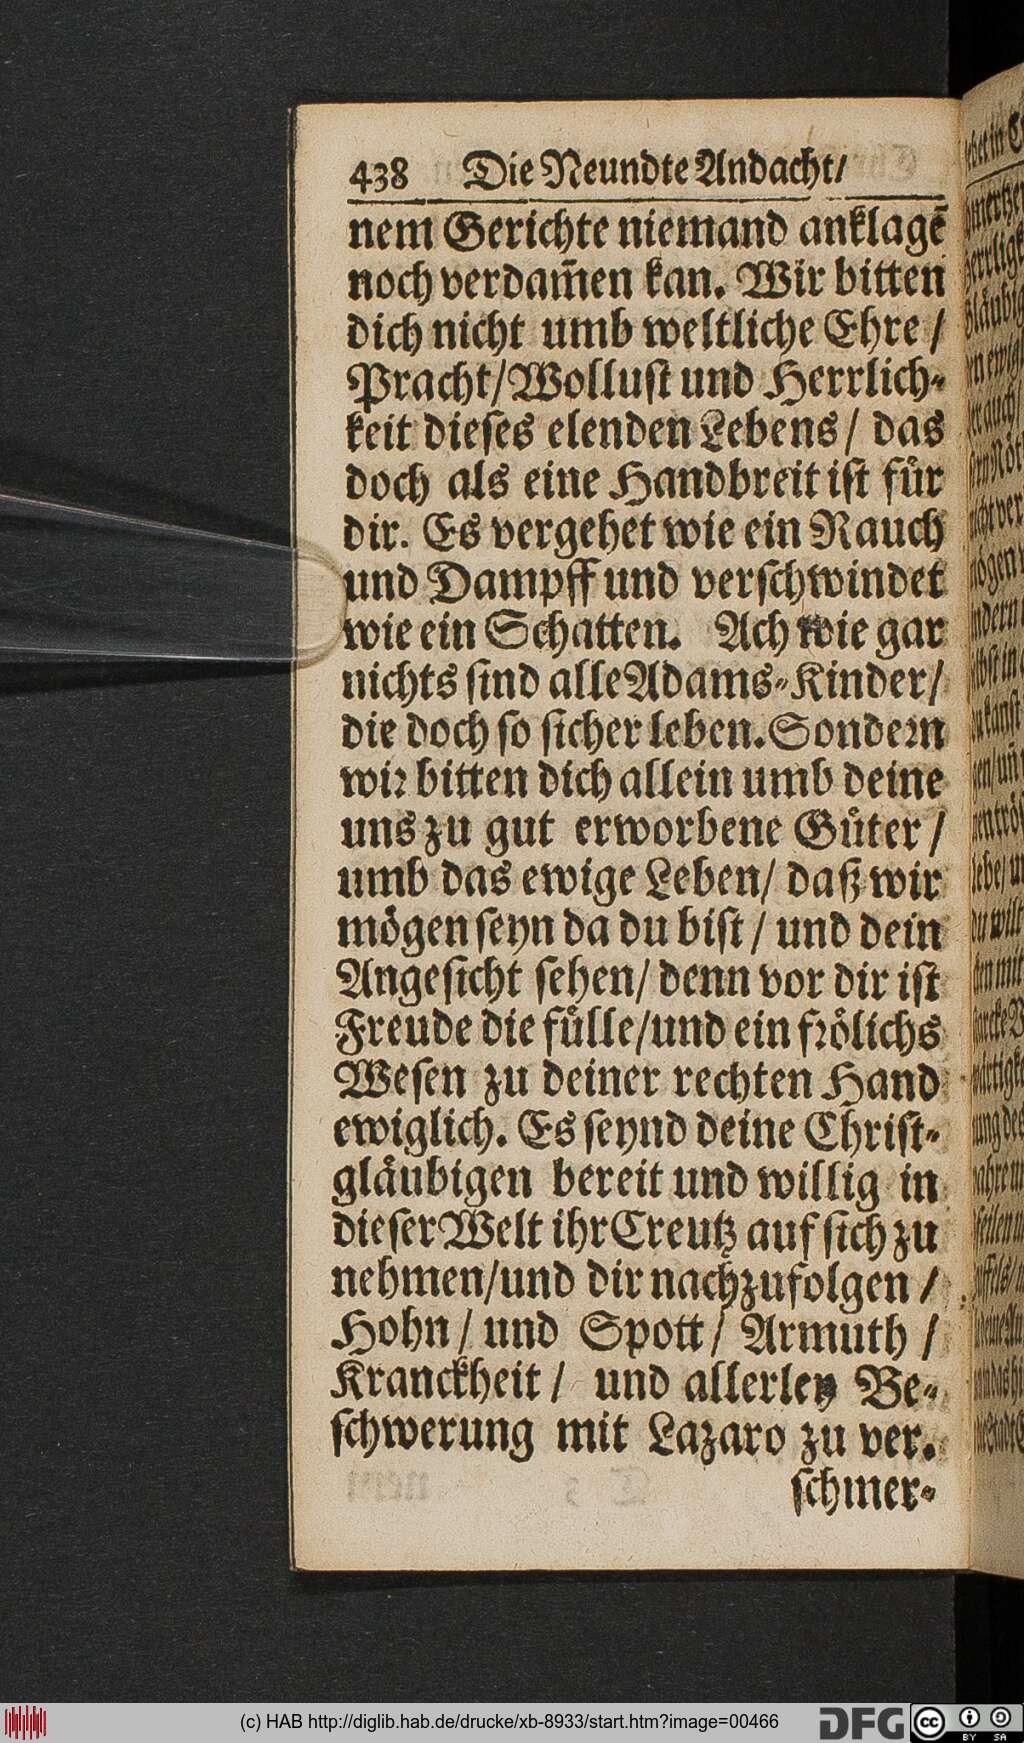 438 Die Neundte Andacht/
nem Gerichte niemand anklagē
noch verdam̄en kan. Wir bitten
dich nicht umb weltliche Ehre /
Pracht/ Wollust und Herrlich-
keit dieses elenden Lebens / das
doch als eine Handbreit ist fuͤr
dir. Es vergehet wie ein Rauch
und Dampff und verschwindet
wie ein Schatten. Ach wie gar
nichts sind alle Adams-Kinder/
die doch so sicher leben. Sondern
wir bitten dich allein umb deine
uns zu gut erworbene Guͤter /
umb das ewige Leben/ daß wir
moͤgen seyn da du bist / und dein
Angesicht sehen/ denn vor dir ist
Freude die fuͤlle/ und ein froͤlichs
Wesen zu deiner rechten Hand
ewiglich. Es seynd deine Christ-
glaͤubigen bereit und willig in
dieser Welt ihr Creutz auf sich zu
nehmen/ und dir nachzufolgen /
Hohn / und Spott / Armuth /
Kranckheit / und allerley Be-
schwerung mit Lazaro zu ver.
schmer-
(c) HAB http://diglib.hab.de/drucke/xb-8933/start.htm?image=00466
DFG cc BY SA